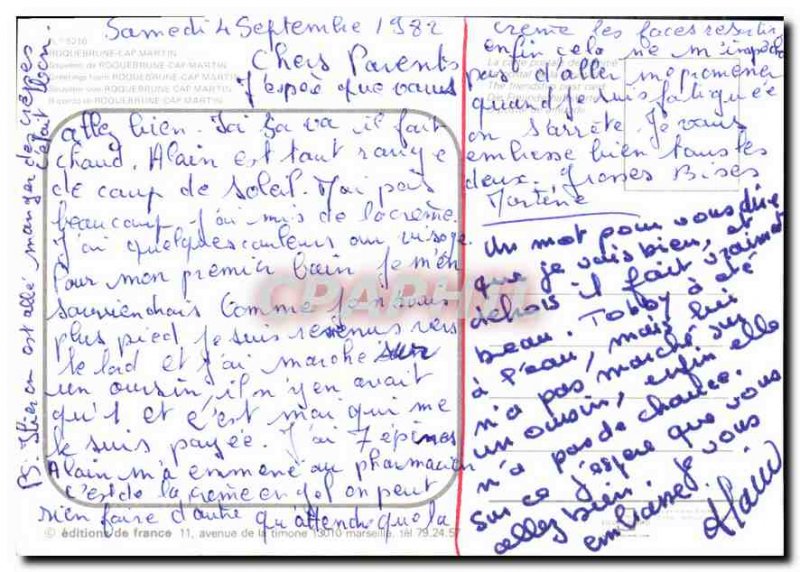 Samedi 4 Septembre 1982
Chers Parents
J'espère que vous
allez bien. Ici Sa va il fait
chaud. Alain est tout rouge
de coup de Soleil. Moi pas
beaucoup j'ai mis de la creme.
J'ai quelques couleurs au visage.
Pour mon premier bain je m'en
souviendrais Comme je n'avais
plus pied, je suis revenus vers
le bord et j'ai marché sur
un oursin, il n'y en avait
qu'1 et c'est moi qui me
le suis payée. J'ai 7 épines
Alain m'a emmené au pharmacien
c'est de la creme en gel on peut
rien faire d'autre qu'attendre que la
creme les faces resortir
enfin cela ne m'inpeche
pas d'aller me promener
quand je suis fatiguée
on s'arrête. Je vous
embrasse bien tous les
deux. Grosses Bises
Martine
Un mot pour vous dire
que je vais bien, et
dehors il fait vraiment
beau. Tobby a été
à l'eau, mais lui
n'a pas marché sur
un oursin, enfin elle
n'a pas de chance.
Sur ce j'espère que vous
allez bien. Je vous
embrasse.
Alain
PS: Hier on est allé manger des crêpes
c'était bon.
N° 5256
ROQUEBRUNE-CAP-MARTIN
Souvenir de ROQUEBRUNE-CAP-MARTIN
Greetings from ROQUEBRUNE-CAP-MARTIN
ROQUEBRUNE-CAP-MARTIN
ROQUEBRUNE-CAP-MARTIN
La carte postale de
The friendship post card
© éditions de france 11, avenue de la timone 13010 marseille, tél 79.24.57
CPAPHIL